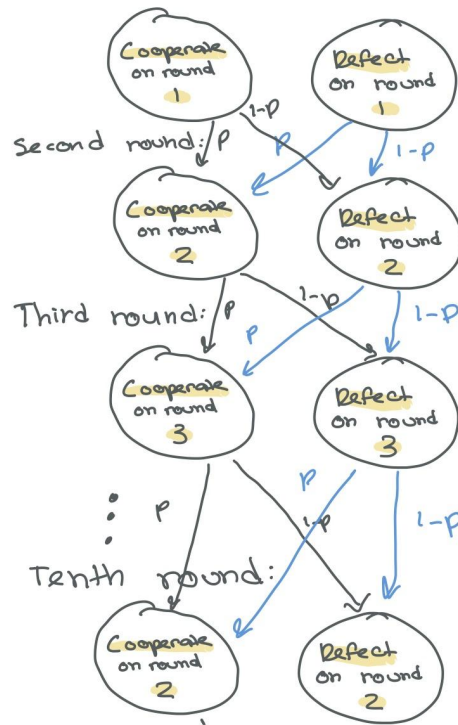 Cooperate
on round
1
Defect
on round
1
Second round: P
1-P
P
1-P
Cooperate
on round
2
Defect
on round
2
Third round: P
1-P
P
1-P
Cooperate
on round
3
Defect
on round
3
P
1-P
P
1-P
Tenth round:
Cooperate
on round
2
Defect
on round
2